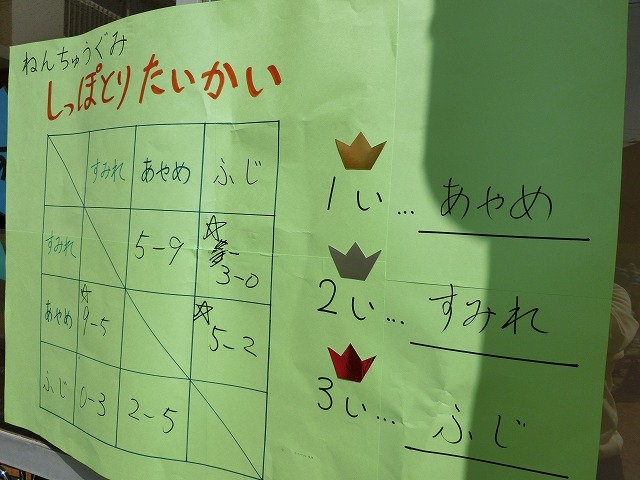 ねんちゅうぐみ
しっぽとりたいかい
すみれ あやめ ふじ
すみれ 5-9 ☆ 3-0
あやめ ☆ 9-5 ☆ 5-2
ふじ 0-3 2-5
1い…あやめ
2い…すみれ
3い…ふじ